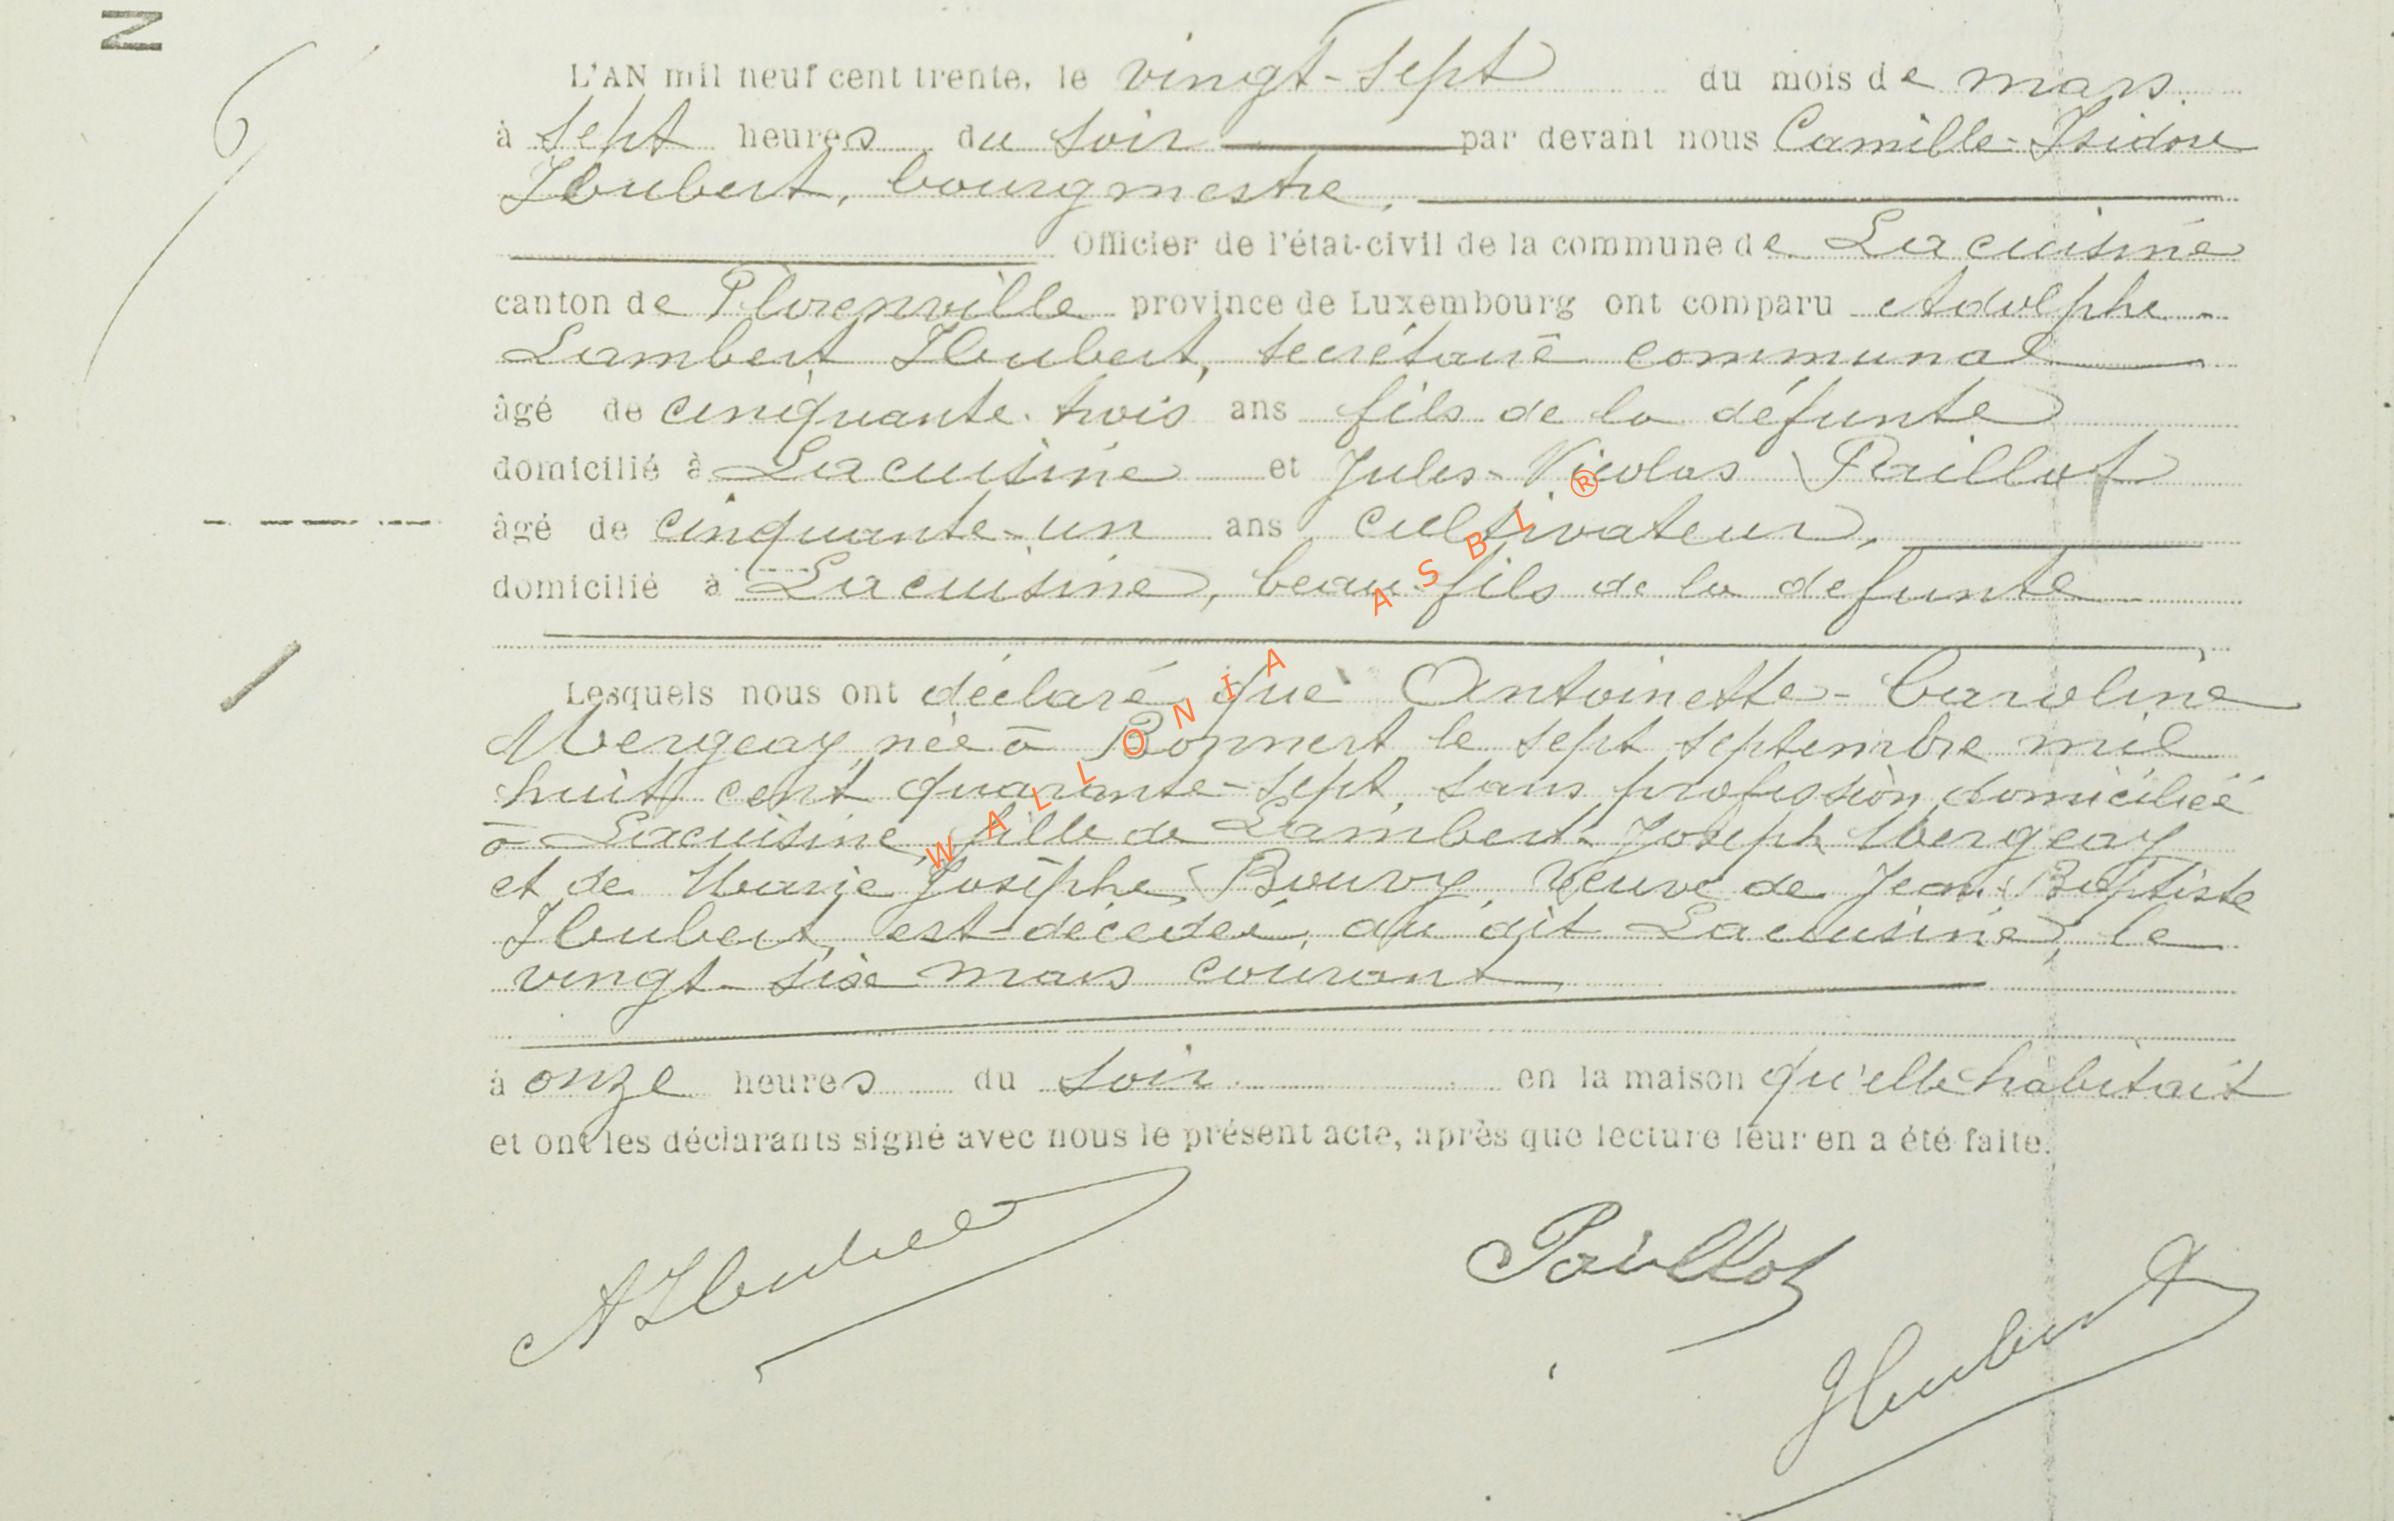 N
L'AN mil neuf cent trente, le vingt-sept du mois de mars
à sept heures du soir par devant nous Camille-Isidore
Houbert, bourgmestre,
Officier de l'état-civil de la commune de Lacuisine
canton de Florenville province de Luxembourg ont comparu Adolphe-
Lambert Houbert, secrétaire communal
âgé de cinquante-trois ans fils de la défunte
domicilié à Lacuisine et Jules-Nicolas Paillot
âgé de cinquante-un ans cultivateur,
domicilié à Lacuisine, beau-fils de la défunte
Lesquels nous ont déclaré que Antoinette-Caroline
Mergeay, née à Bonnert le sept septembre mil
huit cent quarante-sept, sans profession, domiciliée
à Lacuisine, fille de Lambert-Joseph Mergeay
et de Marie Josèphe Bouvy, veuve de Jean-Baptiste
Houbert, est décédée, au dit Lacuisine, le
vingt-six mars courant
à onze heures du soir en la maison qu'elle habitait
et ont les déclarants signé avec nous le présent acte, après que lecture leur en a été faite.
AHoubert Paillot
Houbert
WALLONIA ASBL ®